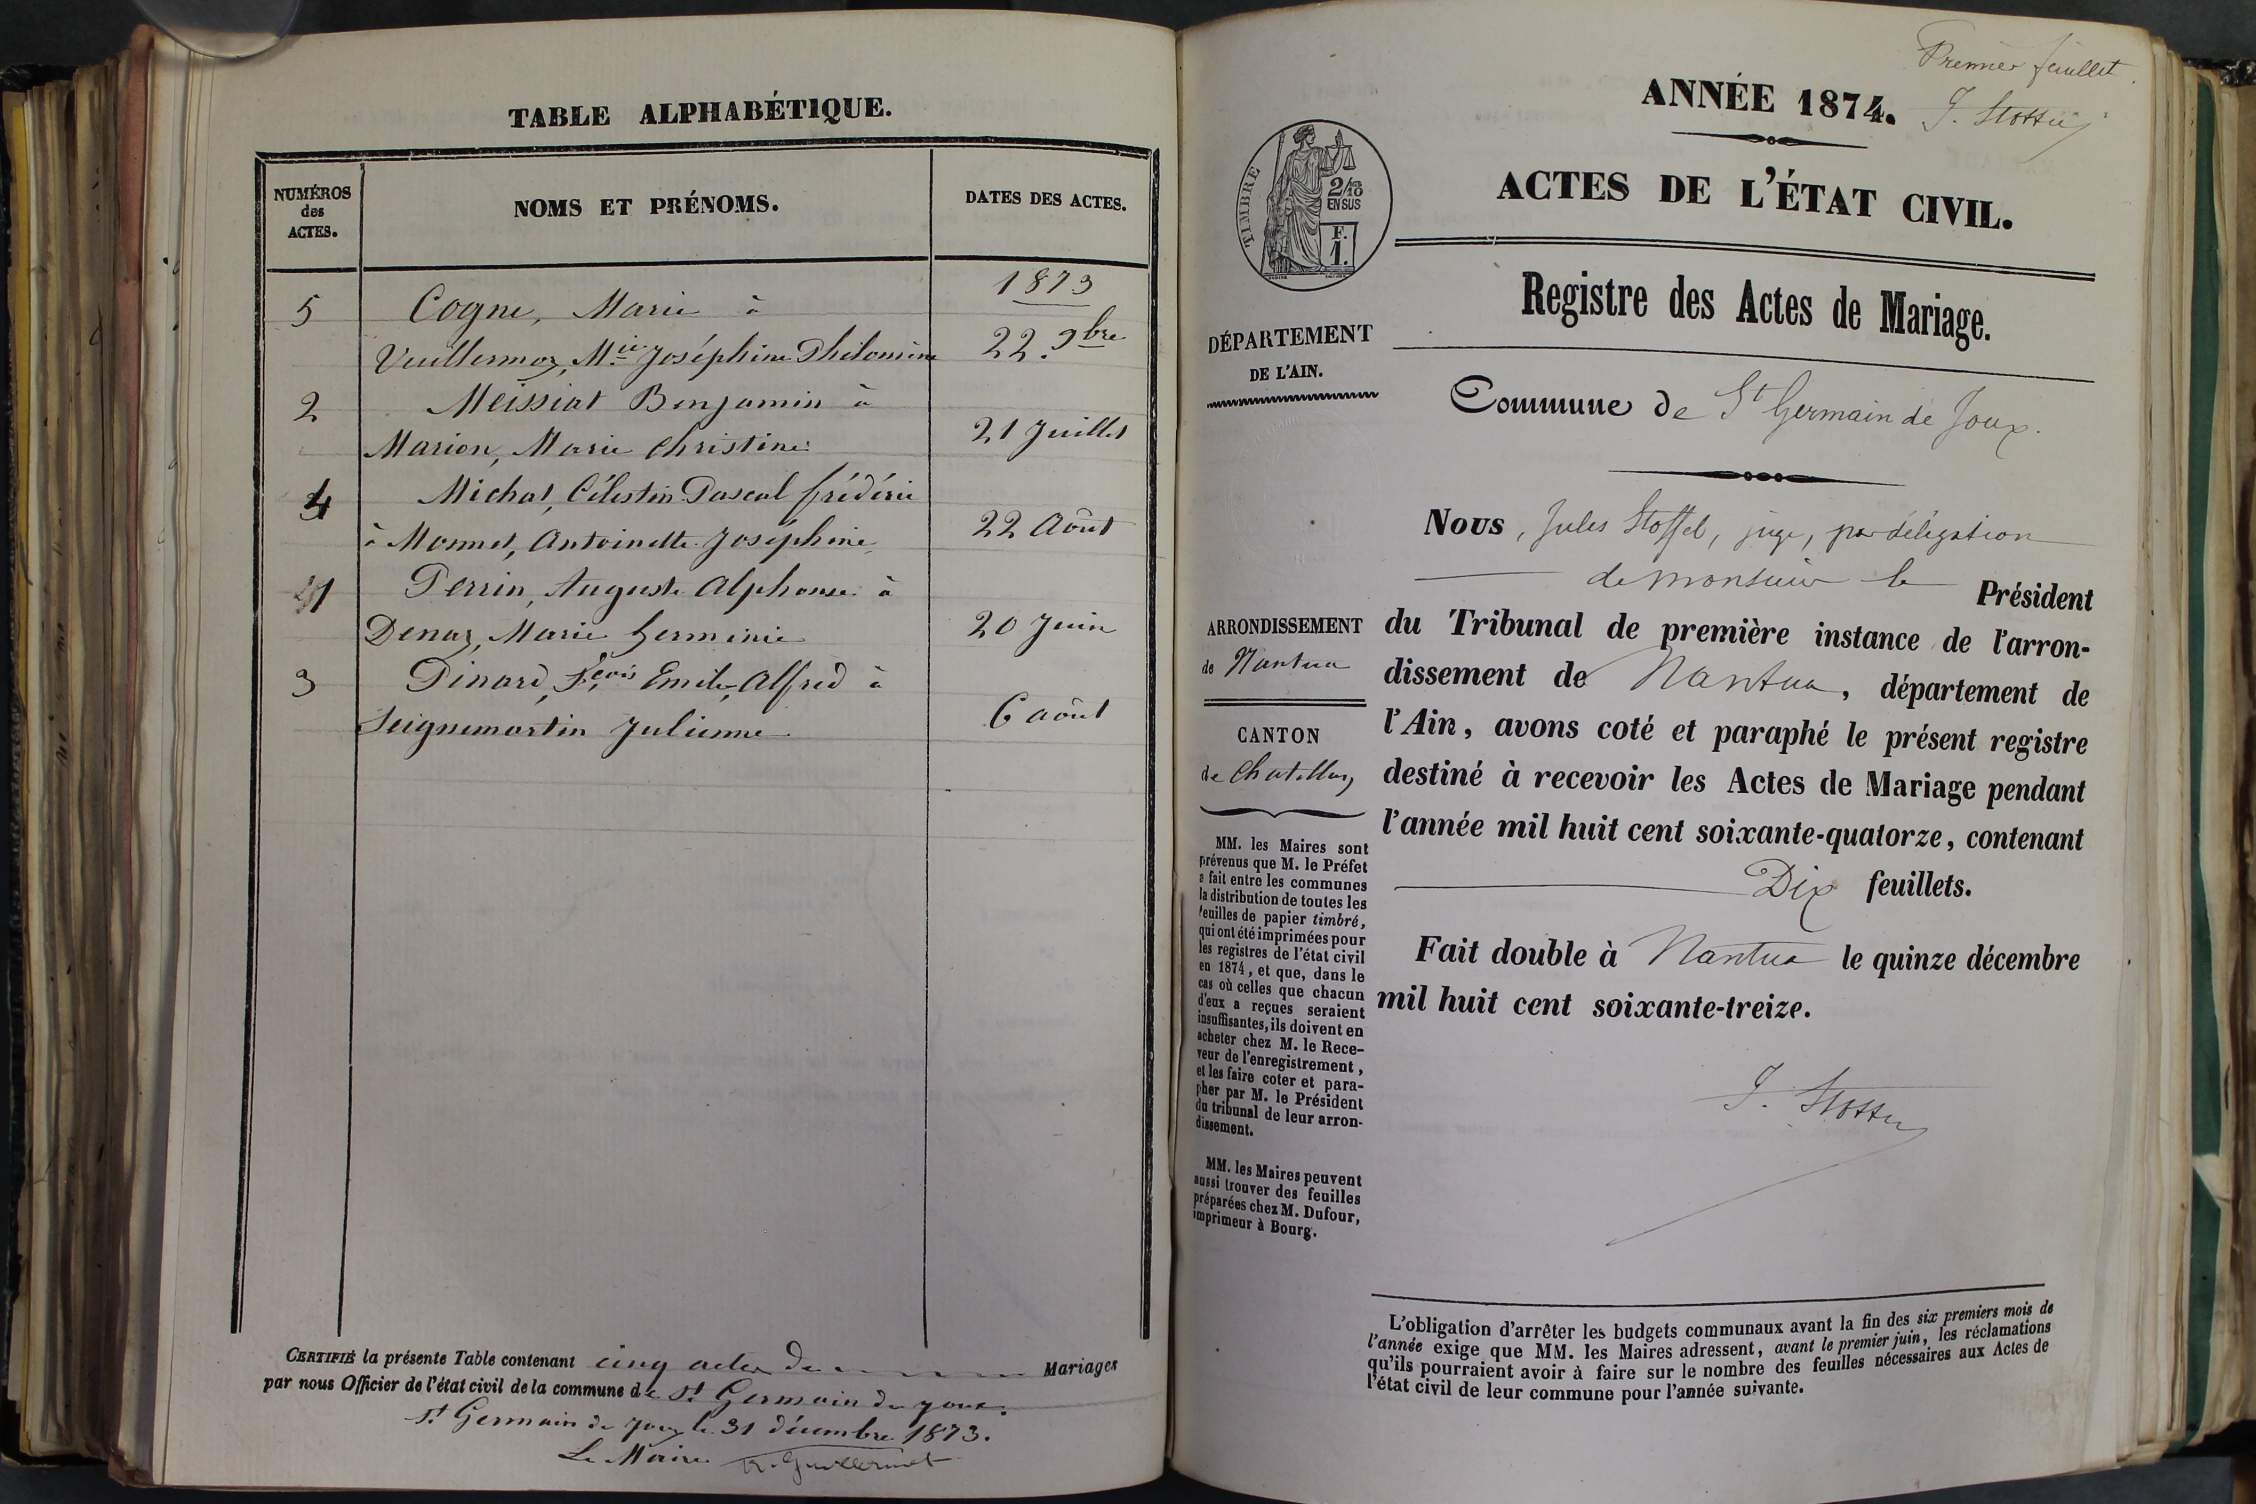 TABLE ALPHABÉTIQUE.
NUMÉROS
des
ACTES.
NOMS ET PRÉNOMS.
DATES DES ACTES.
1873
5 Cogne, Marie à
Vuillermoz, Mie Joséphine Philomène 22 9bre
2 Meissiat Benjamin à
Marion, Marie Christine 21 Juillet
4 Michat, Célestin Pascal frédéric
à Monnet, Antoinette Joséphine 22 Août
1 Perrin, Auguste Alphonse à
Denaz, Marie herminie 20 Juin
3 Pinard, Emile, Alfred à
Seignemartin Julienne 6 août
CERTIFIÉ la présente Table contenant cinq actes de Mariages
par nous Officier de l'état civil de la commune de St Germain de Joux.
St Germain de Joux le 31 décembre 1873.
Le Maire
Premier feuillet.
J. Stoffel
ANNÉE 1874.
ACTES DE L'ÉTAT CIVIL.
TIMBRE
2/10
EN SUS
F.
1.
Registre des Actes de Mariage.
DÉPARTEMENT
DE L'AIN.
Commune de St Germain de Joux.
Nous, Jules Stoffel, juge, par délégation
de monsieur le Président
du Tribunal de première instance de l'arron-
dissement de Nantua, département de
l'Ain, avons coté et paraphé le présent registre
destiné à recevoir les Actes de Mariage pendant
l'année mil huit cent soixante-quatorze, contenant
Dix feuillets.
Fait double à Nantua le quinze décembre
mil huit cent soixante-treize.
J. Stoffel
ARRONDISSEMENT
de Nantua
CANTON
de Chatillon
MM. les Maires sont
prévenus que M. le Préfet
a fait entre les communes
la distribution de toutes les
feuilles de papier timbré,
qui ont été imprimées pour
les registres de l'état civil
en 1874, et que, dans le
cas où celles que chacun
d'eux a reçues seraient
insuffisantes, ils doivent en
acheter chez M. le Rece-
veur de l'enregistrement,
et les faire coter et para-
pher par M. le Président
du tribunal de leur arron-
dissement.
MM. les Maires peuvent
aussi trouver des feuilles
préparées chez M. Dufour,
imprimeur à Bourg.
L'obligation d'arrêter les budgets communaux avant la fin des six premiers mois de
l'année exige que MM. les Maires adressent, avant le premier juin, les réclamations
qu'ils pourraient avoir à faire sur le nombre des feuilles nécessaires aux Actes de
l'état civil de leur commune pour l'année suivante.